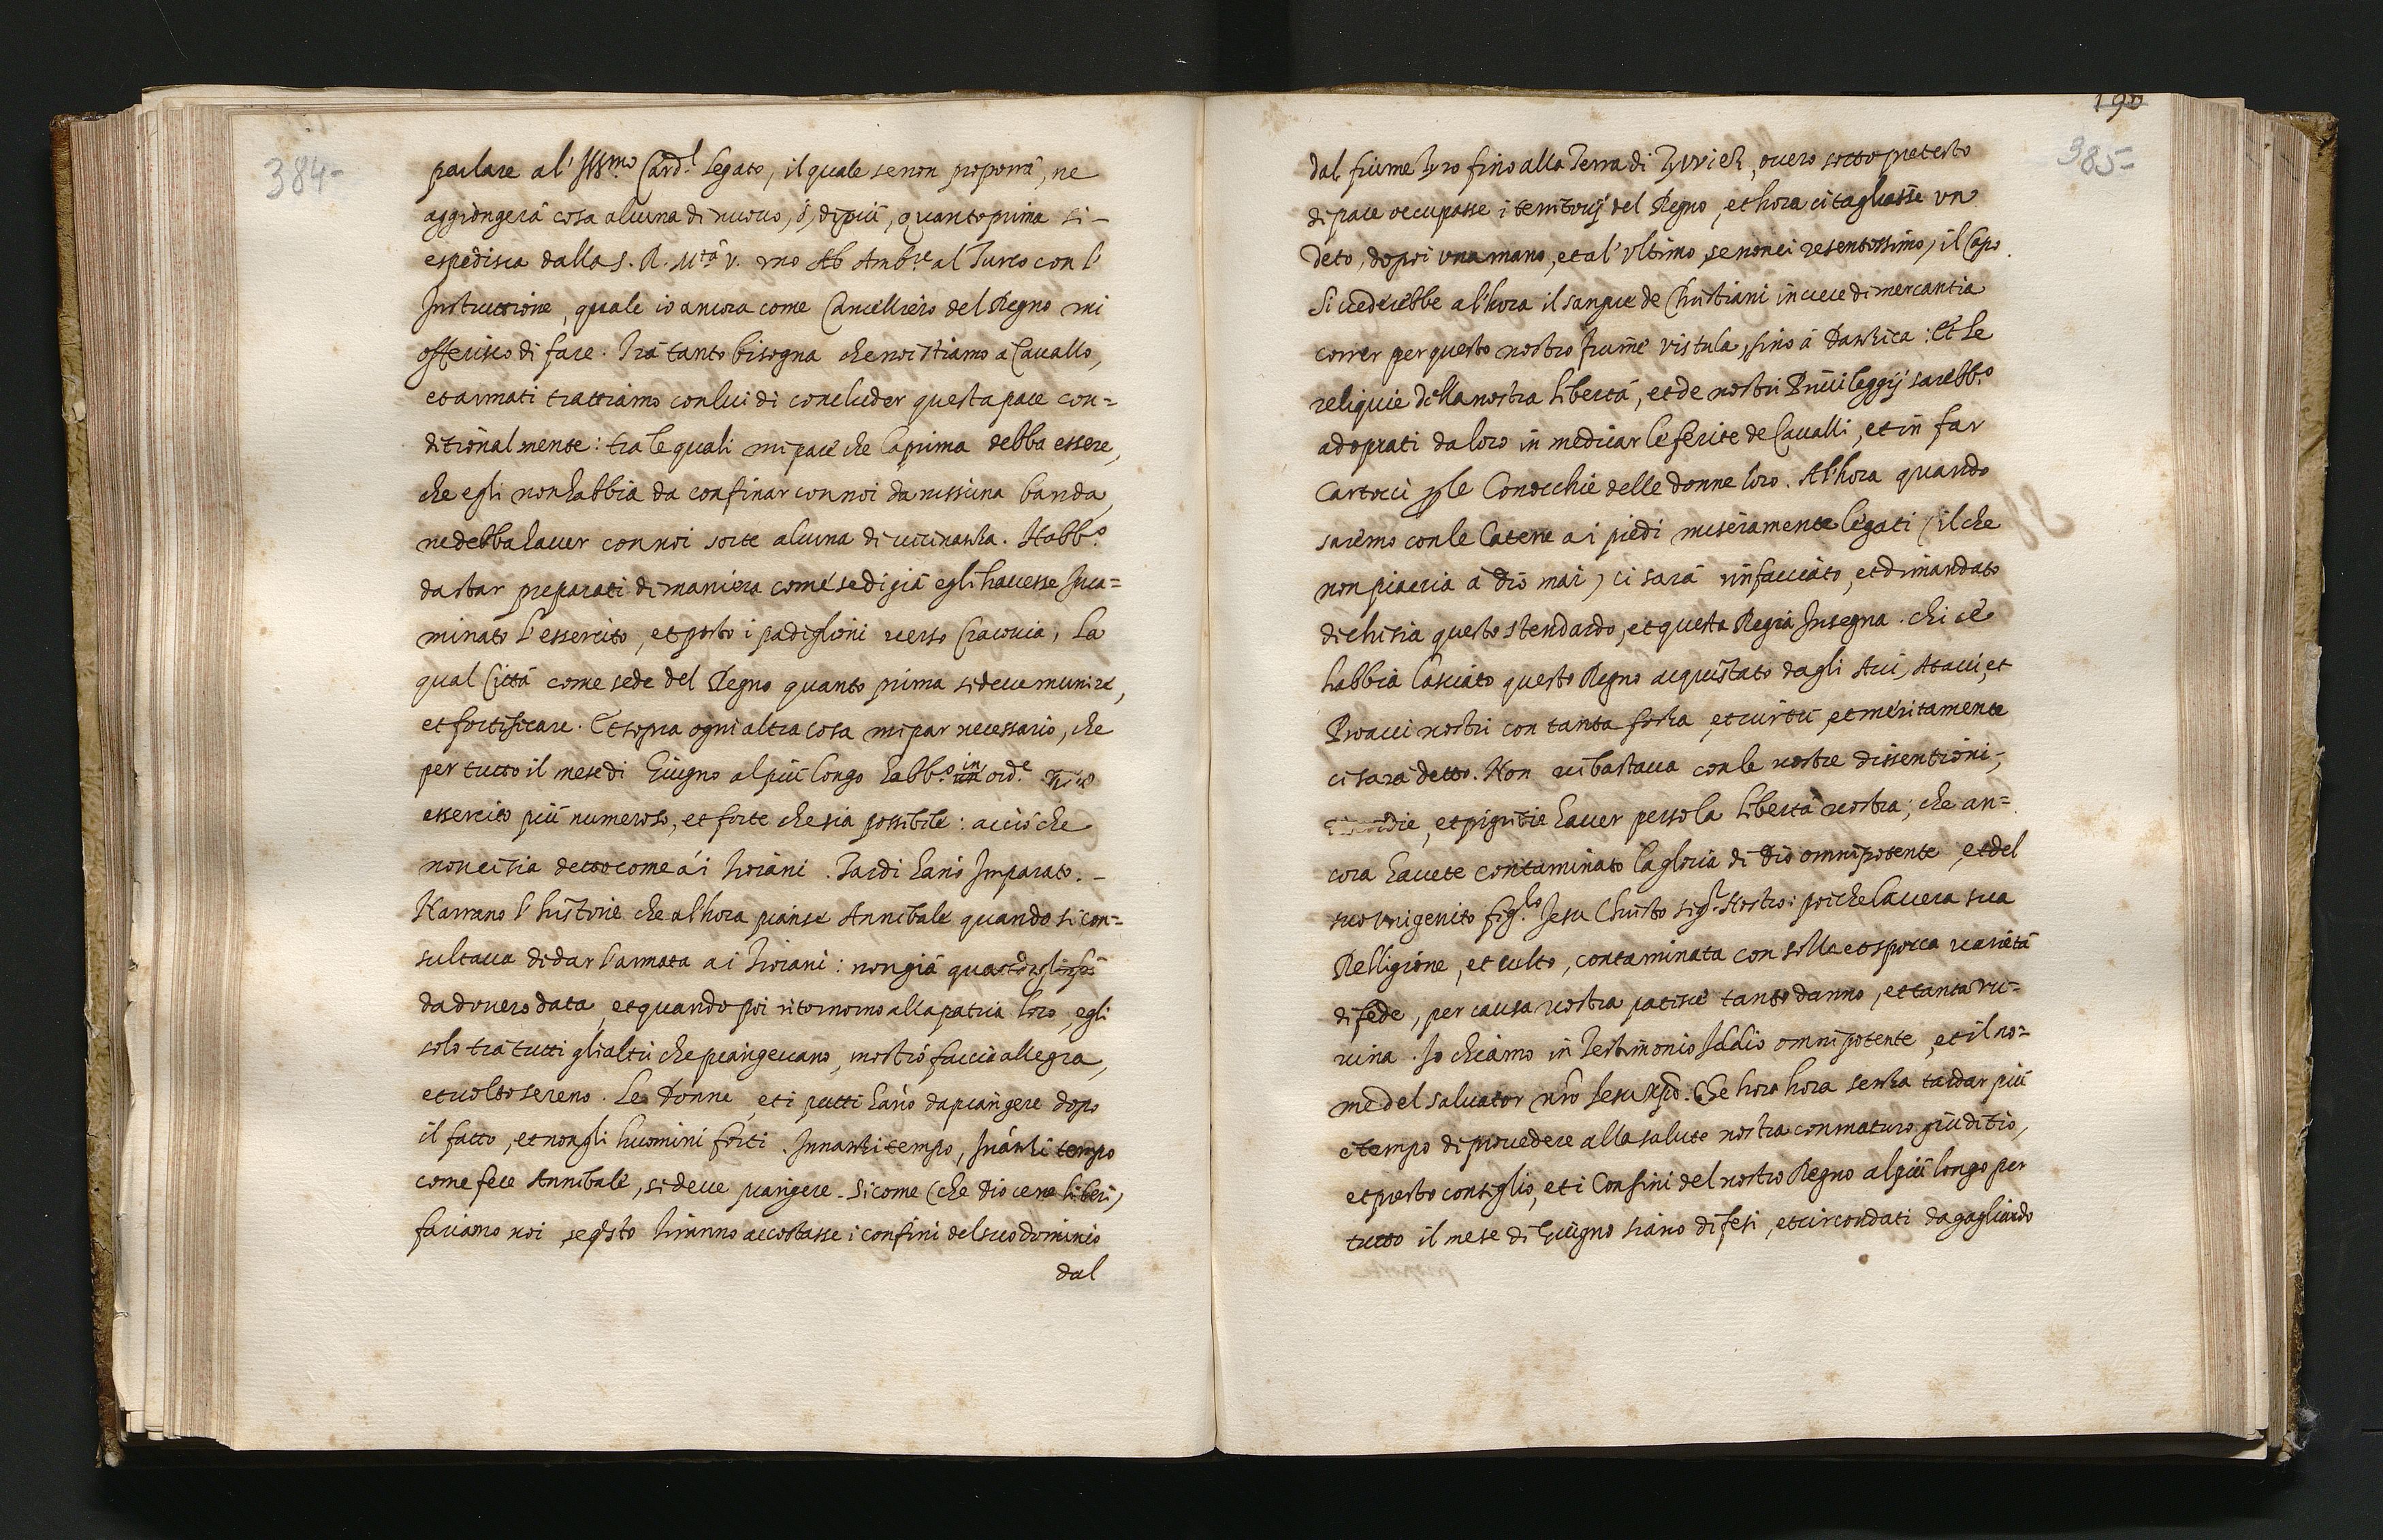 384-
parlare al' Ill.mo Card.l Legato, il quale se non proporrà, ne
aggiongerà cosa alcuna di nuouo, ò, di più, quanto prima si –
espedisca dalla S. R. M.tà V. uno Ab Amb.re al Turco con l'
Instruttione, quale io ancora come Cancelliero del Regno mi
offerisco di fare. Trà tanto bisogna che noi stiamo a Cauallo,
et armati trattiamo con lui di concluder questa pace con=
ditionalmente: tra le quali mi pare che la prima debba essere,
che egli non habbia da confinar con noi da nissuna banda,
ne debba hauer con noi sorte alcuna di vicinanza. Habb.o
da star preparati di maniera come se di già egli hauesse Inca=
minato l'essercito, et posto i padiglioni uerso Cracouia, la
qual Città come sede del Regno quanto prima si deue munire,
et fortificare. Et sopra ogni altra cosa mi par necessario, che
per tutto il mese di Giugno al più longo habb.o in ord.e
essercito più numeroso, et forte che sia possibile: acciò che
non ci sia detto come à i Troiani. Tardi hanò Imparato. –
Narrano l'historie che al'hora pianse Annibale quando si con=
sultaua di dar l'armata a i Troiani: non già quando gli fù
da douero data, et quando poi ritornorno alla patria loro, egli
solo trà tutti gli altri che piangeuano, mostrò faccia allegra,
et uolto sereno. Le Donne, et i putti hanò da piangere dopo
il fatto, et non gli huomini forti. Innanzi tempo, Inanzi tempo
come fece Annibale, si deue piangere. Sicome (che Dio ce ne liberi,)
fariamo noi, se q̃sto Tiranno accostasse i confini del suo dominio
dal
190
385=
dal fiume Tyro fino alla Terra di Zywiek, ouero sotto pretesto
di pace occupasse i territorij del Regno, et hora ci tagliasse un
deto, dopoi una mano, et al' ultimo, se non ci resentissimo, il Capo.
Si uederebbe al'hora il sangue de Christiani in uece di mercantia
correr per questo nostro fiume Vistula, sino à Danzica: Et le
reliquie della nostra libertà, et de nostri Priuileggij sarebb.o
adoprati da loro in medicar le ferite de Caualli, et in far
Cartocci p̱ le Conocchie delle donne loro. Al'hora quando
saremo con le Catene a i piedi miseramente legati (il che
non piaccia à Dio mai) ci sarà rinfacciato, et dimandato
di chi sia questo stendardo, et questa Regia Insegna. Chi ce
habbia lasciato questo Regno acquistato dagli Aui, Ataui, et
Proaui nostri con tanta forza, et uirtù, et meritamente
ci sarà detto. Non ui bastaua con le uostre dissentioni,
et pigritie hauer perso la libertà uostra; che an=
cora hauete contaminato la gloria di Dio omnipotente, et del
suo Unigenito fig.lo Jesu Christo sig.r Nostro: poiche la uera sua
Relligione, et culto, contaminata con folle et sporca uarietà
di fede, per causa uostra patisce tanto danno, et tanta ru=
uina. Io chiamo in Testimonio Iddio omnipotente, et il no=
me del saluator nr̃o Iesu Xp̃o. Che hora hora senza tardar più
è tempo di prouedere alla salute nostra con maturo giuditio,
et presto consiglio, et i Confini del nostro Regno al più longo per
tutto il mese di Giugno siano difesi, et circondati da gagliardo